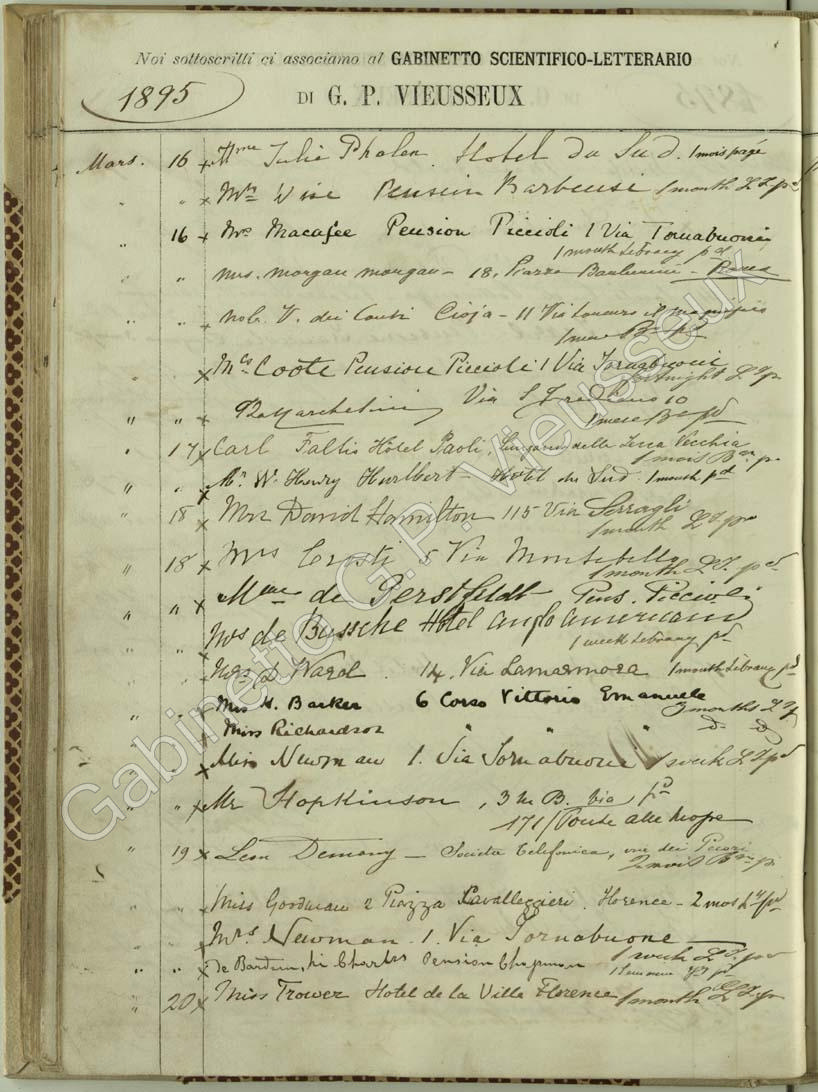 Noi sottoscritti ci associamo al GABINETTO SCIENTIFICO-LETTERARIO
1895
DI G. P. VIEUSSEUX
Mars. 16 x Mme Julie Phalen Hotel du Sud. 1 mois payé
" " x Mrs Wise Pension Barbensi 1 month L T pd
" 16 x Mrs Macafee Pension Piccioli 1 Via Tornabuoni
1 month Library pd
" " Mrs. Morgan Morgan - 18, Piazza Barberini - Rome
" " Nob. V. dei Conti Cioja - 11 Via Lorenzo il Magnifico
1 mese pd
" x Mrs Coote Pension Piccioli 1 Via Tornabuoni
fortnight L T p
" " Via S. Frediano 10
1 mese pd
" 17 x Carl Faltis Hôtel Paoli, Lungarno della Zecca Vecchia
1 mois p.
" " x Mr. W. Henry Hurlbert - Hotel du Sud 1 month pd
" 18 x Mrs David Hamilton 115 Via Serragli
1 month L T p
" 18 x Mrs 5 Via Montebello
1 month L T. pd
" " x Mme de Gerstfeldt Pens. Piccioli
" x Mrs de Bussche Hôtel Anglo Americano
1 week Library pd
" x Mrs L Ward 14, Via Lamarmora 1 month Library pd
" " x Miss H. Barker 6 Corso Vittorio Emanuele
3 months L T p
x Miss Richardson " " " d- d
" x Miss Newman 1. Via Tornabuoni 1 week L T pd
" " x Mr Hopkinson, 3 Via pd
171 / Ponte alle Mosse
" 19 x Leon Demany - Società Telefonica, via dei Pucci
2 mois p.
" " Miss Goodman 2 Piazza Cavalleggieri. Florence - 2 mos pd
" x Mrs Newman. 1. Via Tornabuone
1 week L T. pd
" " x Charles Pension Chapman
" 20 x Miss Trower Hotel de la Ville Florence 1 month L T. p
Gabinetto G.P. Vieusseux